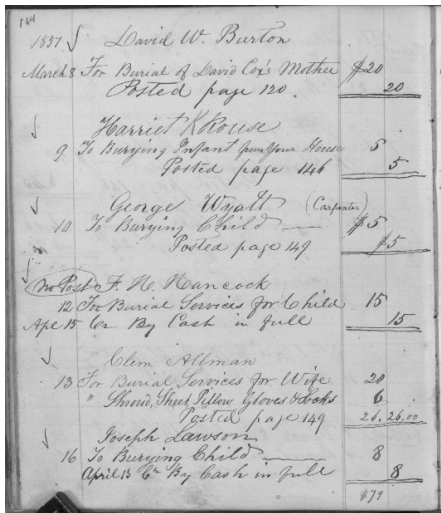 184
1897 David W. Burton
March 8 For Burial of David Cox's Mother $20
Posted page 120. 20
Harriet K Rouse
9 To Burying Infant from Your House 5
Posted page 146 5
George Wyatt (Carpenter)
10 To Burying Child $5
Posted page 149 $5
No Post F. H. Hancock
12 For Burial Services for Child 15
Apl 15 Cr By Cash in full 15
Clem Allman
13 For Burial Services for Wife 20
" Shroud, Sheet Pillow Gloves & Socks 6
Posted page 149 26. 26.00
Joseph Lawson
16 To Burying Child 8
April 13 Cr By Cash in full 8
$79